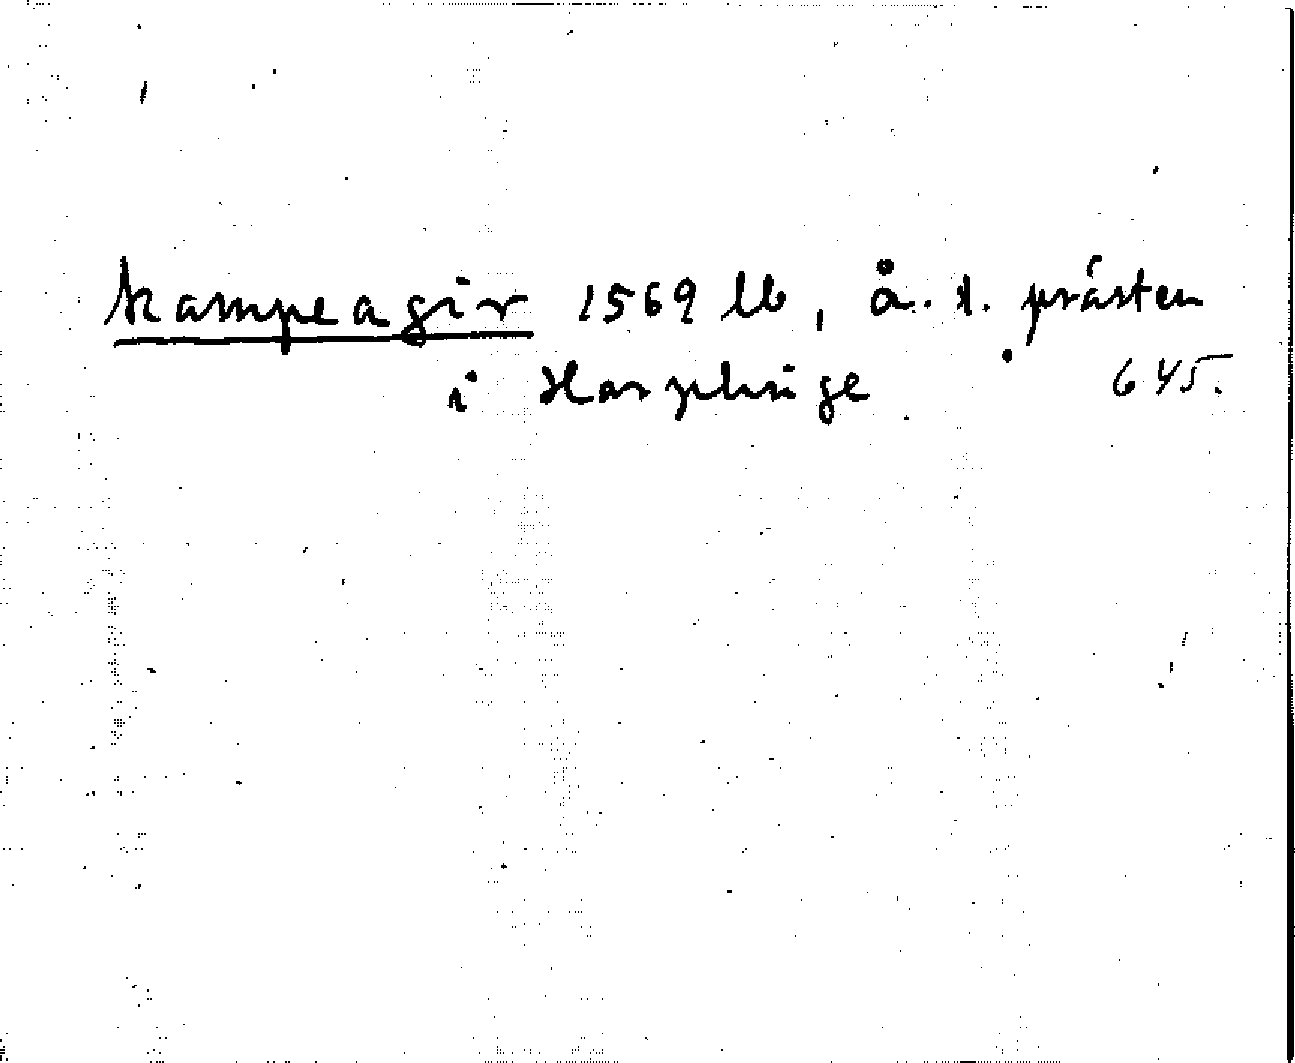 kampeagir 1569 lb, å. t. prästen
i Harplinge 645.